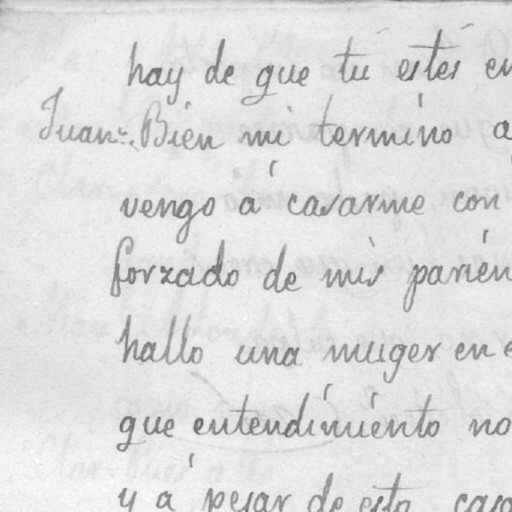 hay de que tú estés en
Juan. Bien mi termino a
vengo á casarme con
forzado de mis parien
hallo una muger en e
que entendimiento no
y á pesar de esto casa